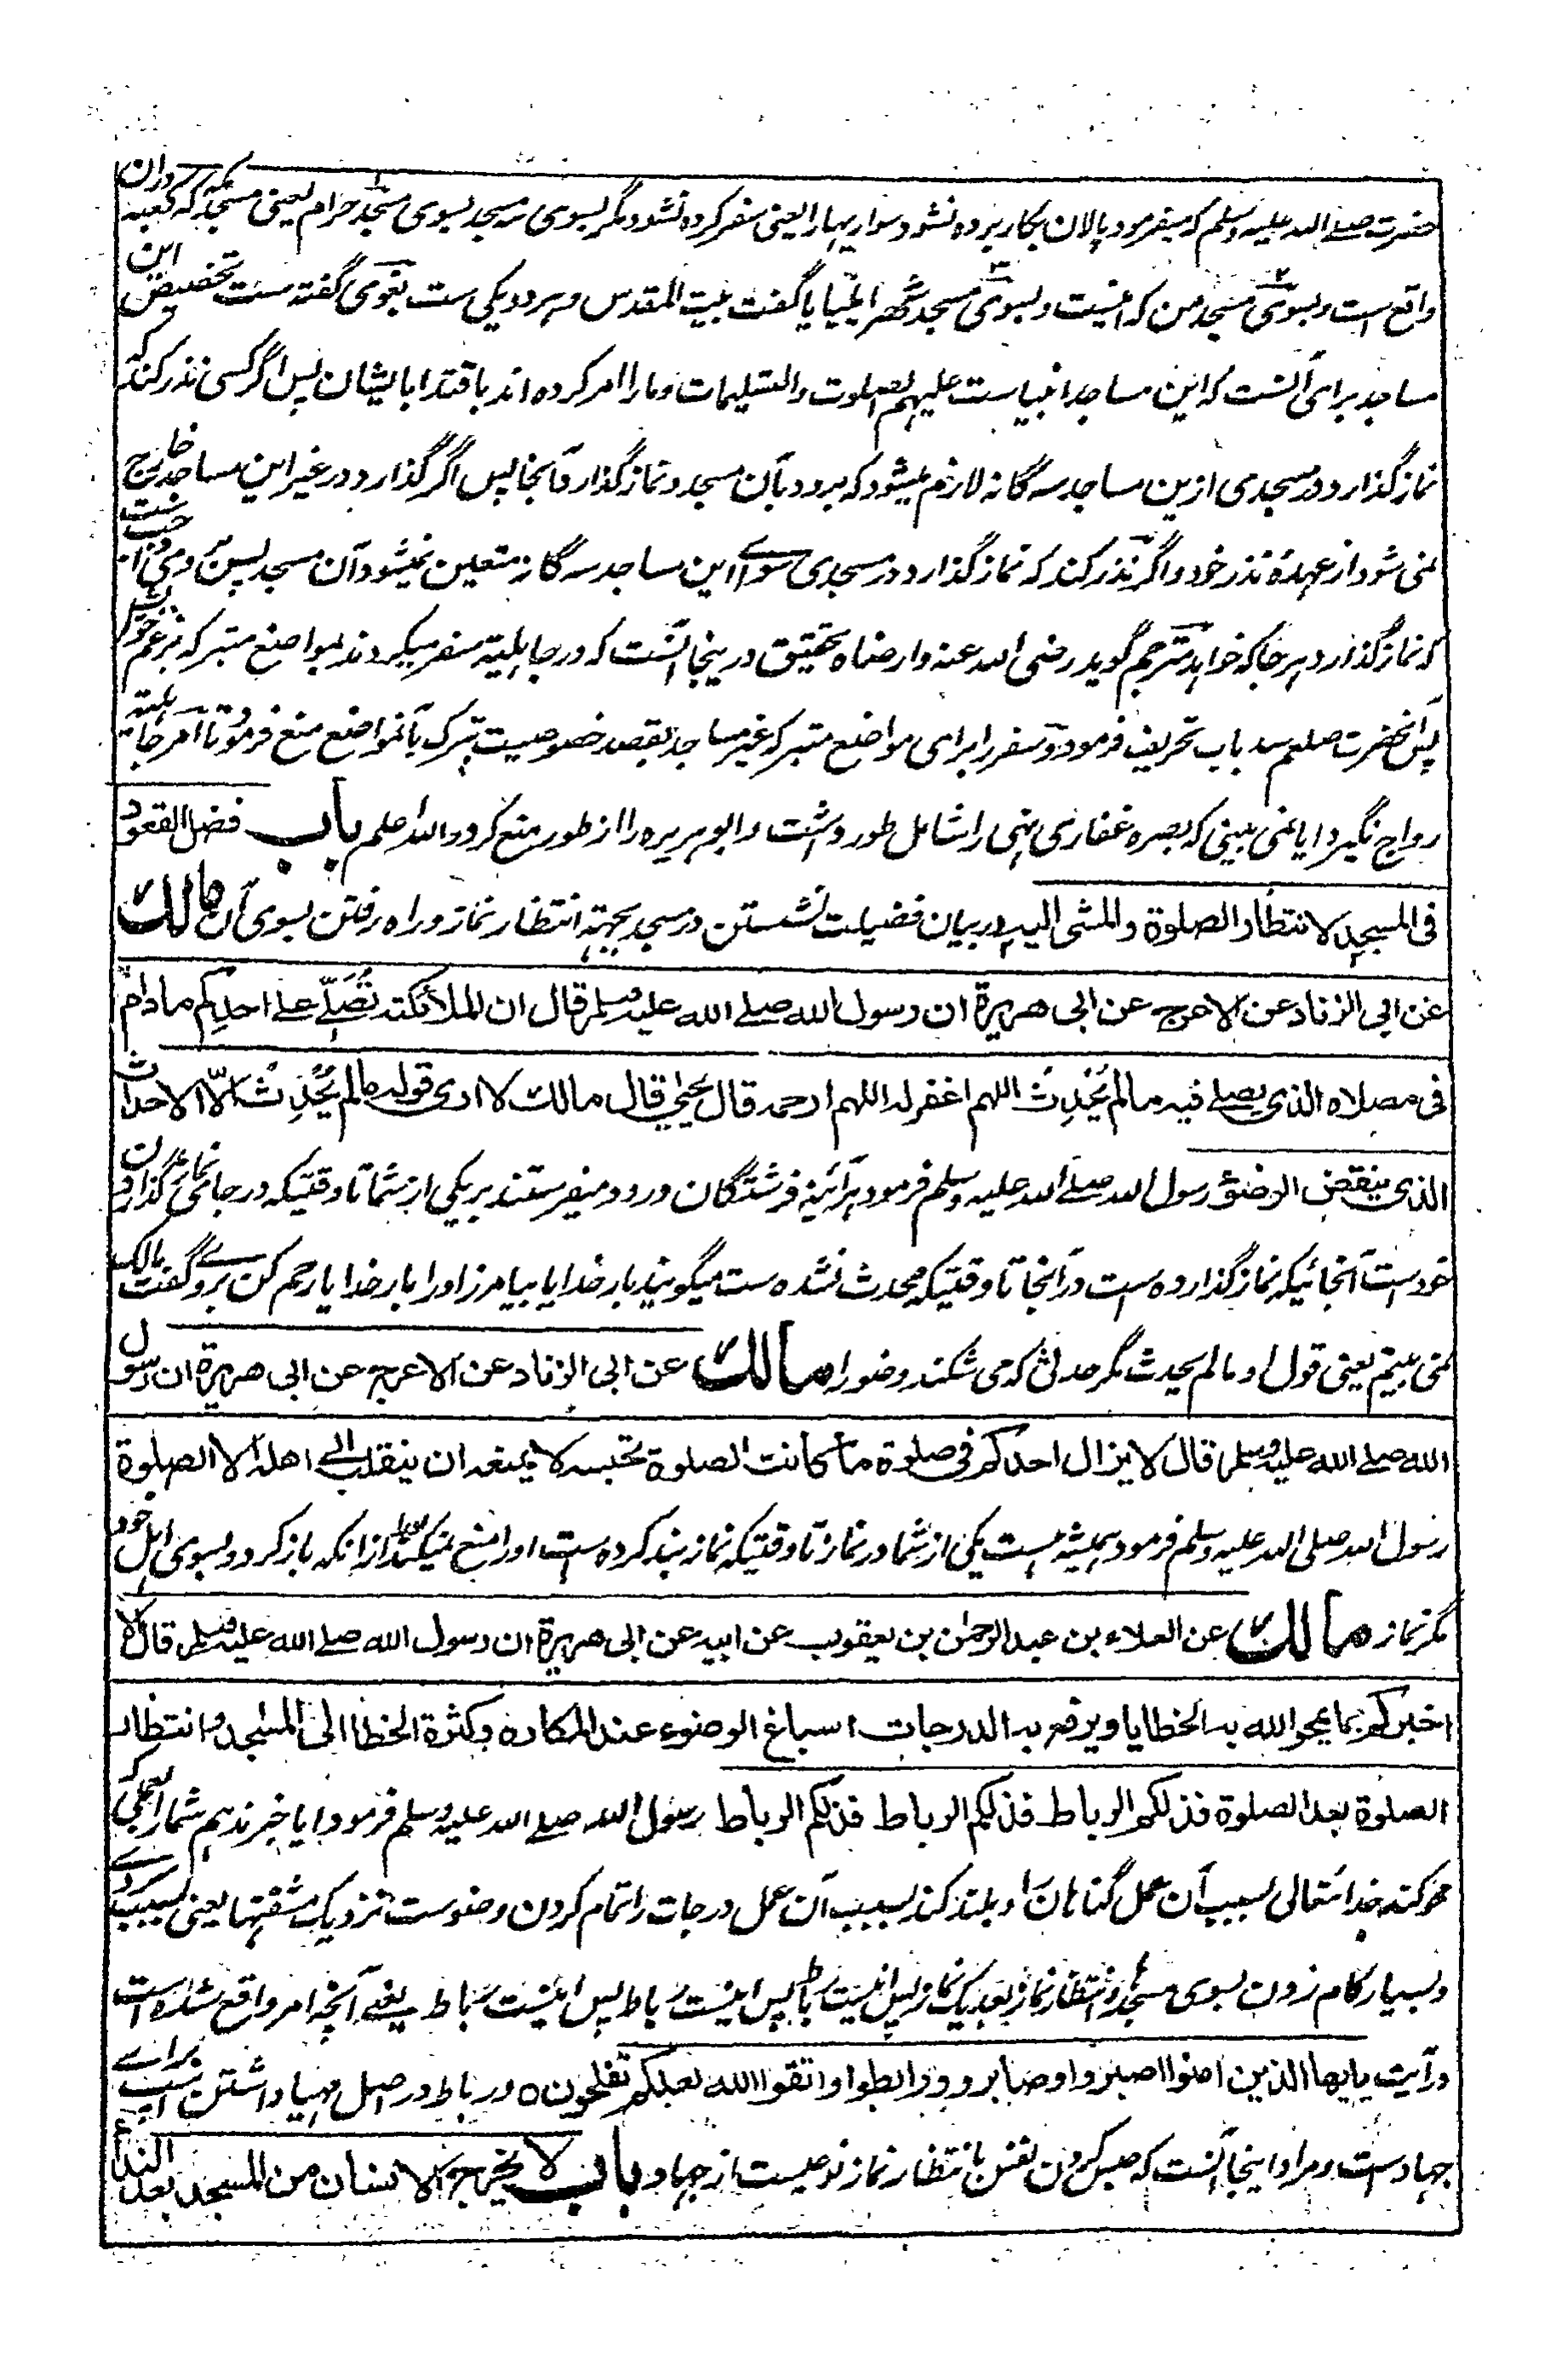 حضرت صلے اللہ علیہ وسلم کہ میفرمود پالان بکار بردہ نشود سواریہا را یعنی سفر کردہ نشود مگر بسوی سہ مسجد بسوی مسجد حرام یعنی مسجدیکہ کعبہ دران
واقع است و بسوی مسجد من کہ اینست و بسوی مسجد شہر ایلیا یا گفت بیت المقدس و ہر دو یکی ست بغوی گفتہ ست تخصیص این
مساجد برای آنست کہ این مساجد انبیاست علیہم الصلوت والتسلیمات و ما را امر کردہ اند باقتدا بایشان پس اگر کسی نذر کند کہ
نماز گذارد در مسجدی ازین مساجد سہ گانہ لازم میشود کہ برود بآن مسجد و نماز گذارد آنجا پس اگر گذارد در غیر این مساجد خارج
نمی شود از عہدۂ نذر خود و اگر نذر کند کہ نماز گذارد در مسجدی سواے این مساجد سہ گانہ متعین نمیشود آن مسجد پس بروی واجب ست
کہ نماز گذارد ہر جا کہ خواہد مترجم گوید رضی اللہ عنہ وارضاہ تحقیق درینجا آنست کہ در جاہلیتہ سفر میکردند بمواضع متبرکہ بزعم خویش
پس آنحضرت صلعم سد باب تحریف فرمود و سفر را برای مواضع متبرکہ غیر مساجد بقصد خصوصیت تبرک بآنمواضع منع فرمود تا امر جاہلیتہ
رواج نگیرد ایا نمی بینی کہ بصرہ غفاری نہی را شامل طور داشت و ابو ہریرہ را از طور منع کرد واللہ اعلم باب فضل القعود
فی المسجد لانتظار الصلوة والمشی الیہ در بیان فضیلت نشستن در مسجد بجہتہ انتظار نماز و راہ رفتن بسوی آن مالك
عن ابی الزناد عن الاعرج عن ابی ھریرة ان رسول اللہ صلے اللہ علیہ وسلم قال ان الملائکتہ تُصَلّے علے احدکم مادام
فی مصلاہ الذی یصلے فیہ مالم یُحْدِث اللہم اغفر لہ اللہم ارحمہ قال یحیٰی قال مالك لا اری قولہ مالم یُحْدِث الّا الاحداث
الذی ینقض الوضوٴ رسول اللہ صلے اللہ علیہ وسلم فرمود ہر آئینہ فرشتگان درود میفرستند بر یکی از شما تا وقتیکہ در جای نماز گذاردن
خود ست آنجائیکہ نماز گذاردہ است در آنجا تا وقتیکہ محدث نشدہ ست میگویند بار خدایا بیامرز او را بار خدایا رحم کن بروے گفت مالک
نمی بینم یعنی قول او مالم یحدث مگر حدثی کہ می شکند وضو را مالك عن ابی الزناد عن الاعرج عن ابی ھریرة ان رسول
اللہ صلے اللہ علیہ وسلم قال لا یزال احدکم فی صلوة ما کانت الصلوة تحبسہ لا یمنعہ ان ینقلب الی اھلہ الا الصلوة
رسول اللہ صلی اللہ علیہ وسلم فرمود ہمیشہ ہست یکی از شما در نماز تا وقتیکہ نماز بند کردہ ست او را منع نمیکند او را از انکہ باز گردد بسوی اہل خود
مگر نماز مالك عن العلاء بن عبد الرحمٰن بن یعقوب عن ابیہ عن ابی ھریرة ان رسول اللہ صلے اللہ علیہ وسلم قال الا
اخبرکم بما یمحو اللہ بہ الخطایا ویرفع بہ الدرجات اسباغ الوضوء عند المکارہ وکثرة الخطا الی المسجد وانتظار
الصلوة بعد الصلوة فذلکم الرباط فذلکم الرباط فذلکم الرباط رسول اللہ صلے اللہ علیہ وسلم فرمود ایا خبر ندہم شما را بعملی کہ
محو کند خدا ئتعالی بسبب آن عمل گناہان را و بلند کند بسبب آن عمل درجات را تمام کردن وضوست نزدیک مشقتہا یعنی بسبب سردے
و بسیار گام زدن بسوی مسجد و انتظار نماز بعد یک نماز پس اینست رباط پس اینست رباط پس اینست رباط یعنے آنچہ امر واقع شدہ است
در آیت یایھا الذین امنوا اصبروا وصابروا ورابطوا واتقوا اللہ لعلکم تفلحون ٥ و رباط در اصل مہیا داشتن اسب براے
جہادست و مراد اینجا آنست کہ حبس کردن نفس بانتظار نماز نوعیست از جہاد باب لا یخرج الانسان من المسجد بعد النداء